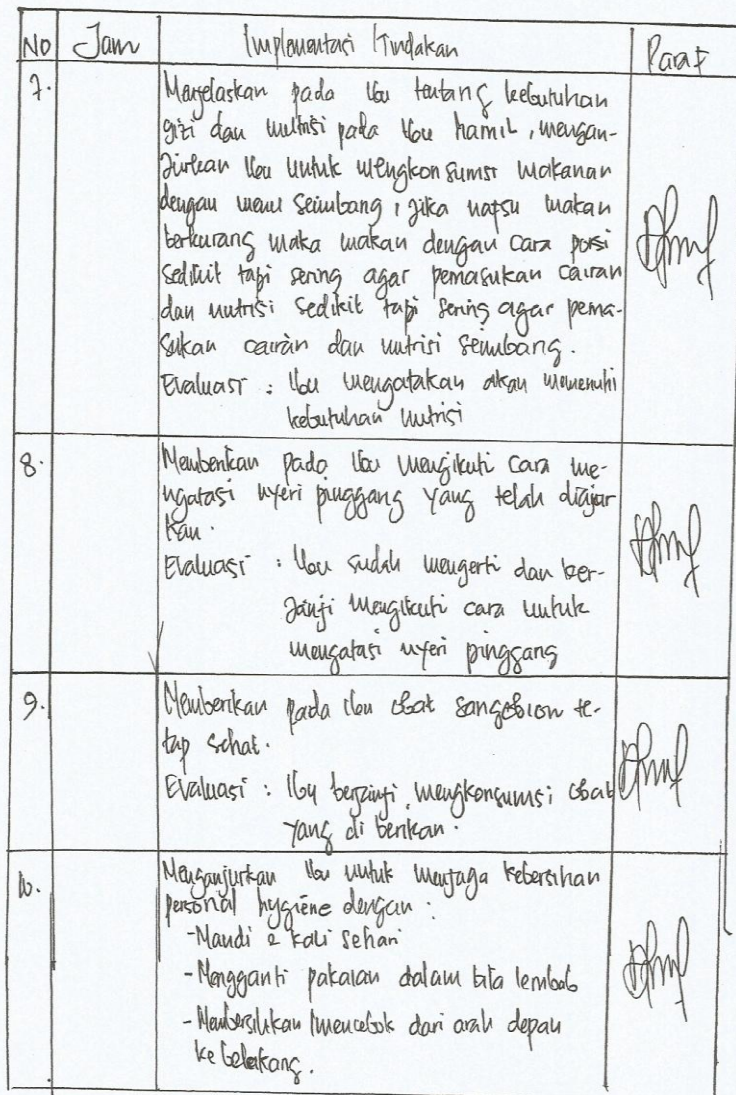 No Jam Implementasi Tindakan Paraf
7. Menjelaskan pada Ibu tentang kebutuhan
gizi dan nutrisi pada Ibu hamil, mengan-
jurkan Ibu untuk mengkonsumsi makanan
dengan menu seimbang, jika napsu makan
berkurang maka makan dengan cara porsi
sedikit tapi sering agar pemasukan cairan
dan nutrisi sedikit tapi sering agar pema-
sukan cairan dan nutrisi seimbang.
Evaluasi : Ibu mengatakan akan memenuhi
kebutuhan nutrisi
8. Memberikan pada Ibu mengikuti cara me-
ngatasi nyeri pinggang yang telah diajar
kan.
Evaluasi : Ibu sudah mengerti dan ber-
janji mengikuti cara untuk
mengatasi nyeri pinggang
9. Memberikan pada Ibu obat sangobion te-
tap sehat.
Evaluasi : Ibu berjanji mengkonsumsi obat
yang di berikan.
10. Menganjurkan Ibu untuk menjaga kebersihan
personal hygiene dengan :
- Mandi 2 kali sehari
- Mengganti pakaian dalam bila lembab
- Membersihkan/mencebok dari arah depan
ke belakang.